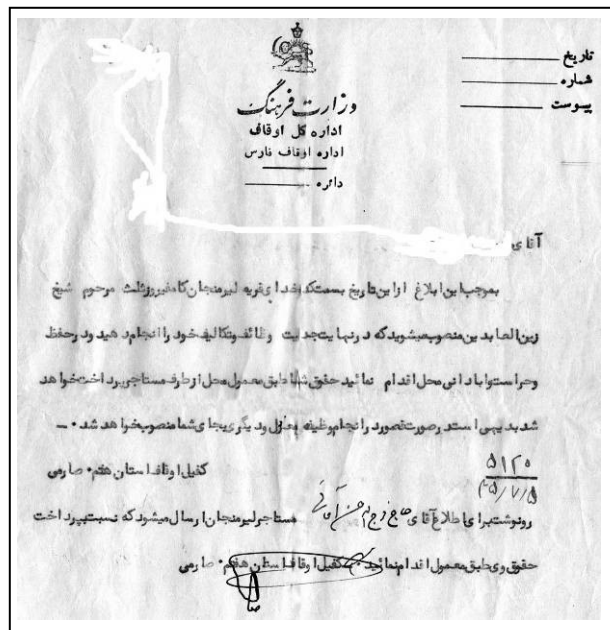 تاریخ
شماره
پیوست
وزارت فرهنگ
اداره کل اوقاف
اداره اوقاف فارس
دائره
آقای
بموجب این ابلاغ از این تاریخ بسمت کدخدای قریه لیرمنجان کامفیروز ثلث مرحوم شیخ
زین العابدین منصوب میشوید که در نهایت جدیت وظائف و تکالیف خود را انجام دهید و در حفظ
و حراست و آبادانی محل اقدام نمائید حقوق شما طابق معمول محل از طرف مستاجر پرداخت خواهد
شد بدیهی است در صورت قصور در انجام وظیفه معزول و دیگری بجای شما منصوب خواهد شد ۰ ـ
کفیل اوقاف استان هفتم ۰ صارمی
۵۱۲۰
۴۵/۷/۵
رونوشت برای اطلاع آقای حاج مستاجر لیرمنجان ارسال میشود که نسبت بپرداخت
حقوق وی طابق معمول اقدام نمائید ۰ کفیل اوقاف استان هفتم ۰ صارمی